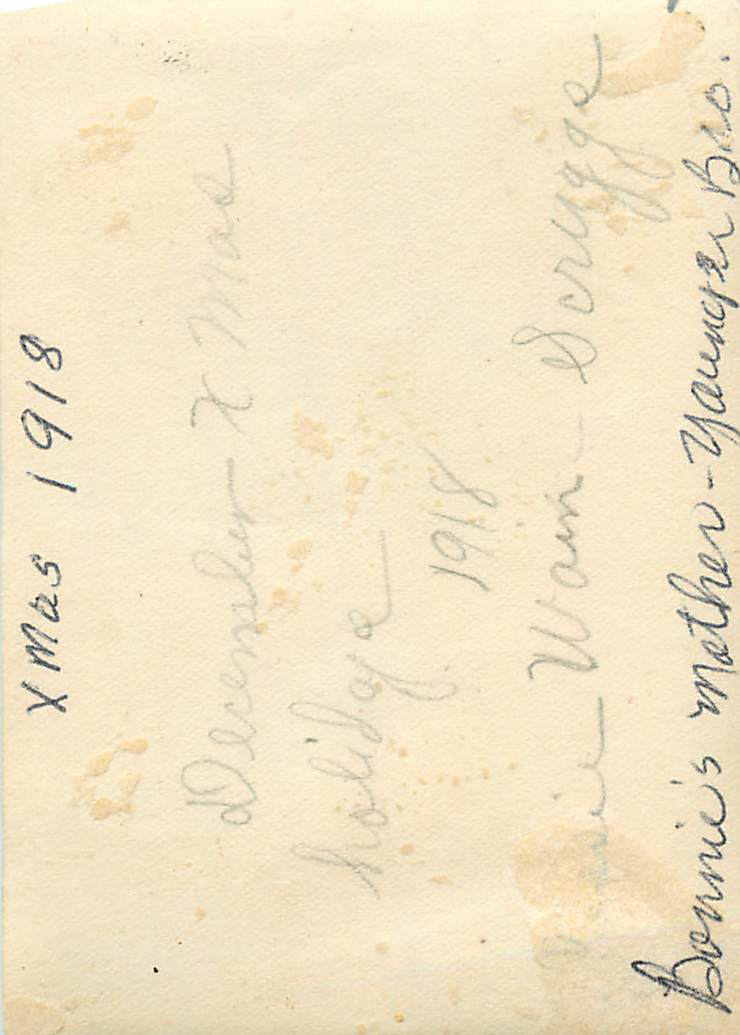 XMas 1918
December X Mas
holidays
1918
Wain Scruggs
Bonnie's Mother - Younger Bro.